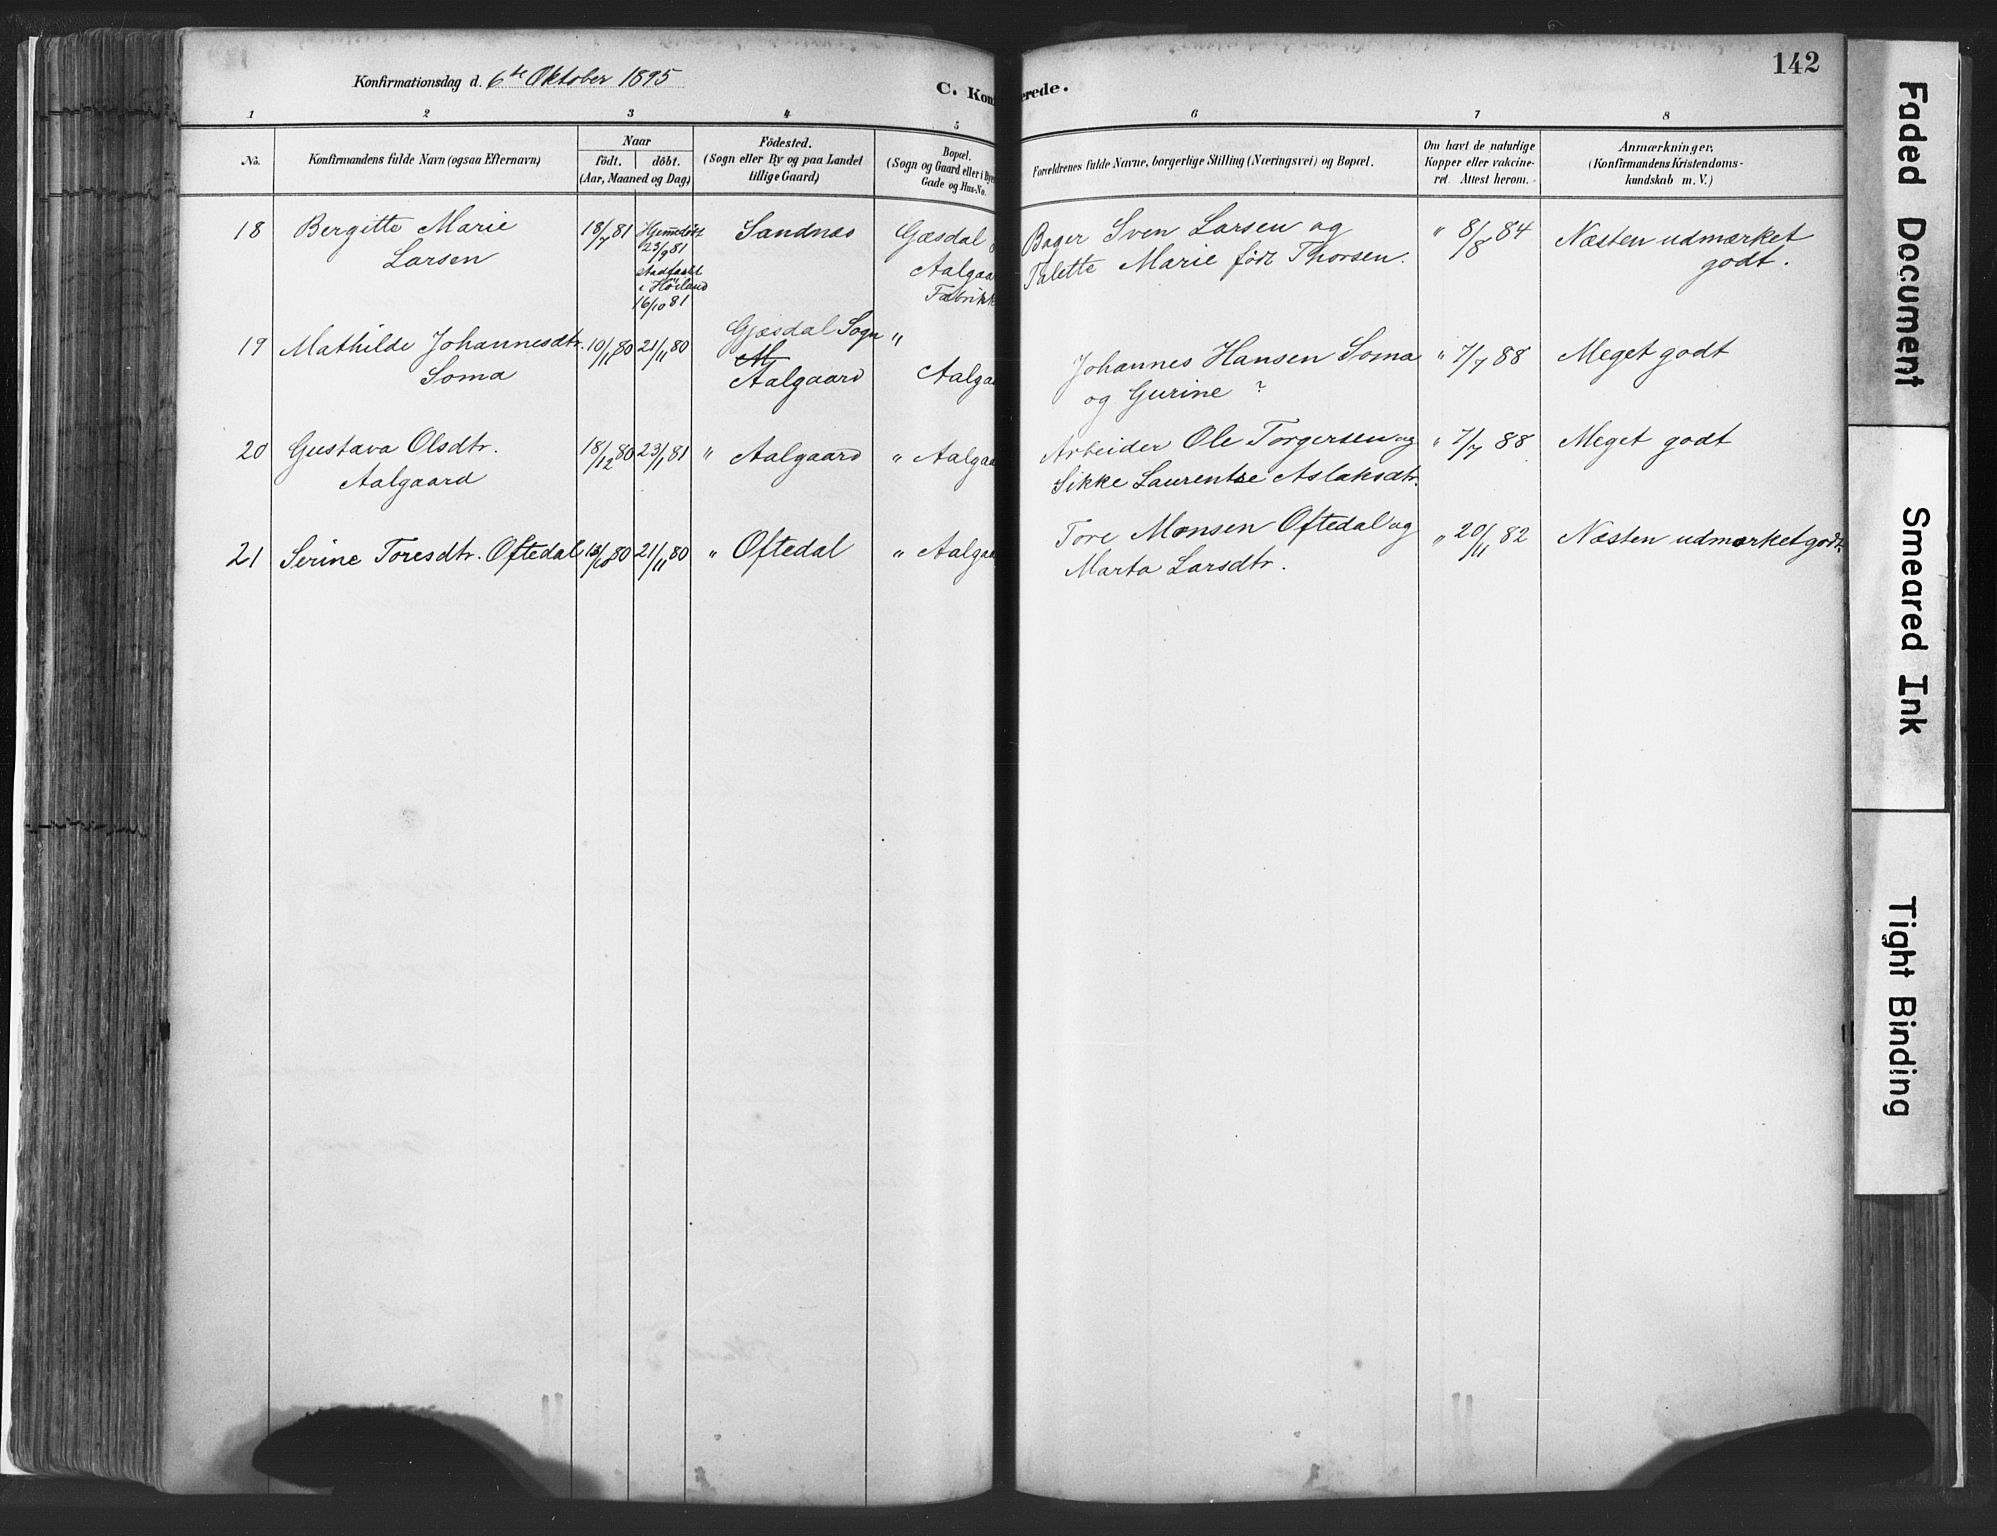 142
Konfirmationsdag d. 6te Oktober 1895
C. Kon erede.
1 2 3 4 5 6 7 8
No.
Konfirmandens fulde Navn (ogsaa Efternavn)
Naar
födt. döbt.
(Aar, Maaned og Dag)
Födested.
(Sogn eller By og paa Landet
tillige Gaard)
Bopæl.
(Sogn og Gaard eller i Byen
Gade og Hus-No.
Forældrenes fulde Navne, borgerlige Stilling (Næringsvei) og Bopæl.
Om havt de naturlige
Kopper eller vakcine-
ret. Attest herom.
Anmærkninger,
(Konfirmandens Kristendoms-
kundskab m. V.)
18 Bergitte Marie
Larsen
18/7 81
Hjemedöbt
23/9 81
stadfæstet
i Höiland
16/10 81
Sandnæs
Gæsdal
Aalgaa
Fabrikk
Bager Sven Larsen og
Talette Marie födt Thorsen.
" 8/8 84
Næsten udmærket
godt.
19 Mathilde Johannesdtr.
Soma
10/11 80 21/11 80
Gjæsdal Sogn
Aalgaard
"
Aalgaa
Johannes Hansen Soma
og Gurine ?
" 7/7 88
Meget godt
20 Gustava Olsdtr.
Aalgaard
18/12 80 23/1 81 " Aalgaard " Aalgaa
Arbeider Ole Torgersen og
Sikke Laurentse Aslaksdtr.
" 7/7 88
Meget godt
21 Serine Toresdtr. Oftedal
/10 80 21/11 80 " Oftedal " Aalgaa
Tore Monsen Oftedal og
Marta Larsdtr.
" 20/11 82
Næsten udmærket godt.
Faded Document
Smeared Ink
Tight Binding